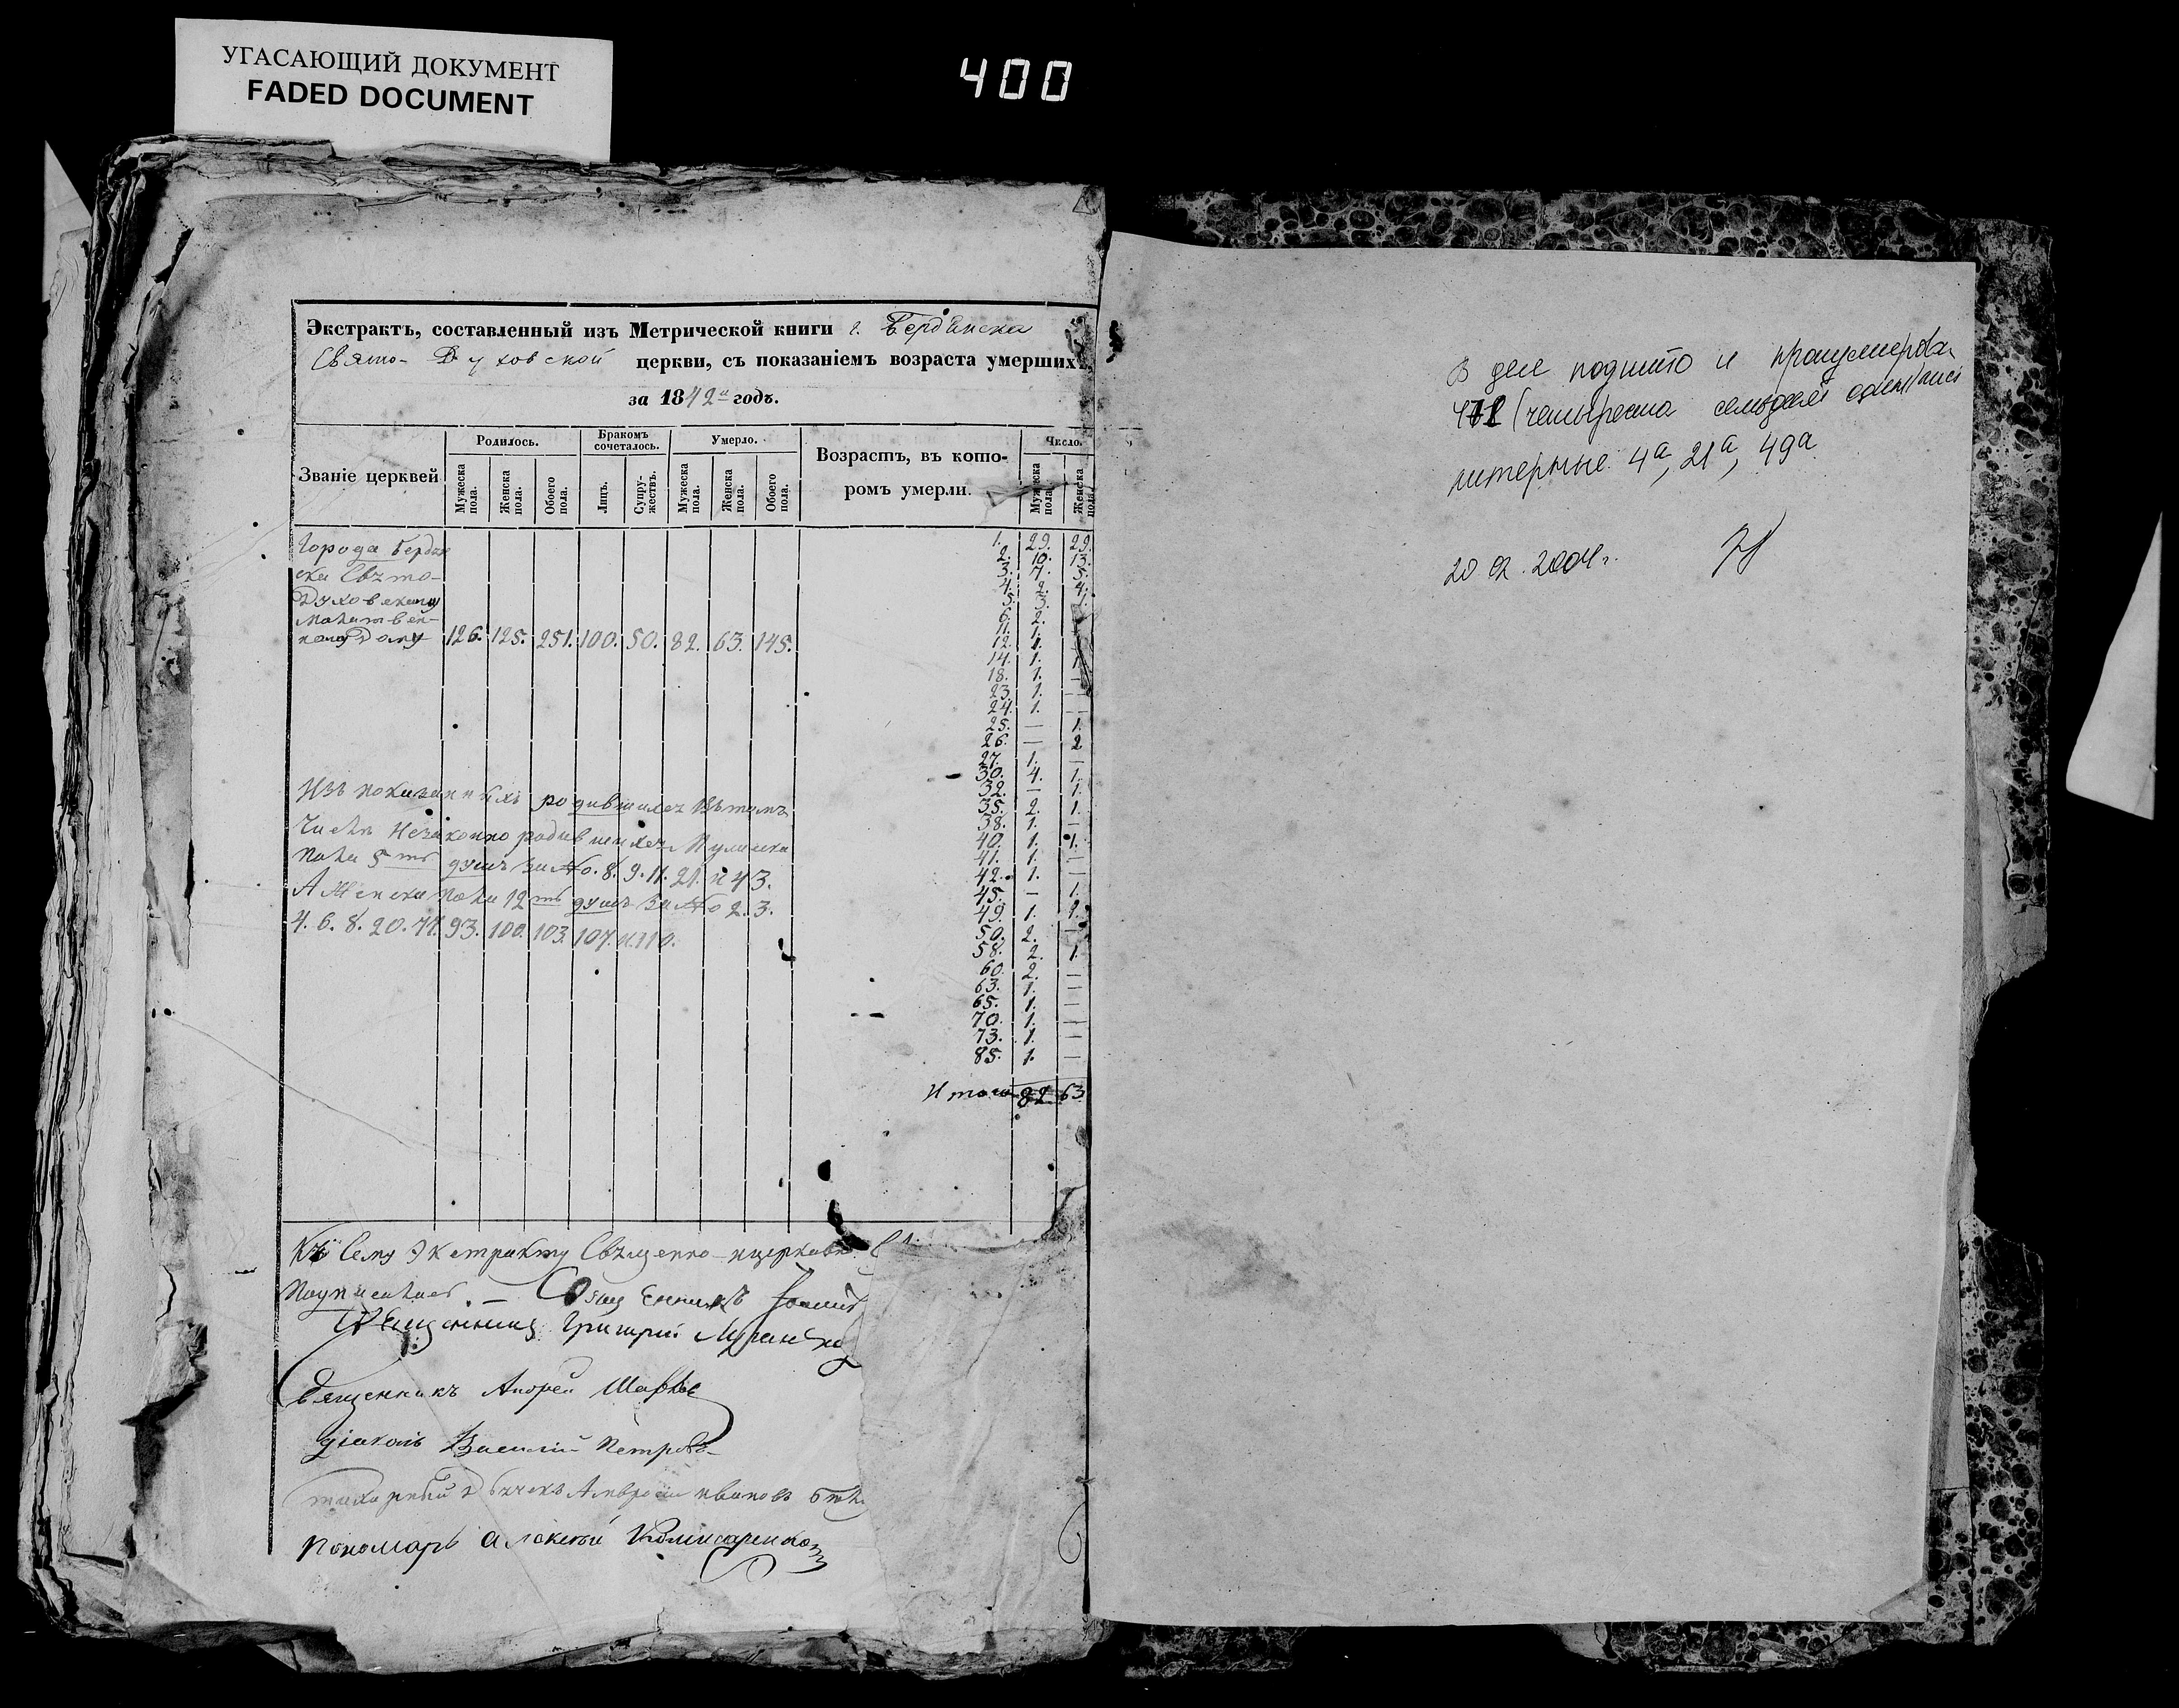 УГАСАЮЩИЙ ДОКУМЕНТ
FADED DOCUMENT
400
Экстрактъ, составленный изъ Метрической книги г. Бердянска
Свято-Духовской церкви, съ показаніемъ возраста умершихъ,
за 1842й годъ.
Званіе церквей
Родилось.
Бракомъ сочеталось.
Умерло.
Возрастъ, въ которомъ умерли.
Число.
Мужеска пола.
Женска пола.
Обоего пола.
Лицъ.
Супружествъ.
Мужеска пола.
Женска пола.
Обоего пола.
Мужеска пола.
Женска пола.
Города Бердян
ска Свято-
Духовскому
молитвен-
ному дому 126. 125. 251. 100. 50. 82. 63. 145.
1. 29. 29.
2. 10. 13.
3. 7. 5.
4. 2. 4.
5. 3. 1.
6. 2.
11. 1.
12. 1.
14. 1. 1.
18. 1. —
23. 1. —
24. 1. —
25. — 1.
26. — 2
27. 1. —
30. 4. 1.
32. — 1.
35. 2. 1.
38. 1. —
40. 1. 1.
41. 1. —
42. 1. —
45. — 1.
49. 1.
50. 2. —
58. 2. 1.
60. 2. —
63. 1. —
65. 1. —
70. 1. —
73. 1. —
85. 1. —
Итого 82 63
Изъ показанныхъ родившихся въ томъ
числѣ незаконно родившихся Мужеска
пола 5ть душъ за No. 8. 9. 11. 21. и 43.
А Женска пола 12ть душъ за No 2. 3.
4. 6. 8. 20. 71. 93. 100. 103. 107. и 110.
Къ сему Экстракту Священно-церковно
Священникъ
Священникъ Григорій
Священникъ Андрей
діаконъ Василій Петровъ
Пономарь Алексѣй Комисаренко
В деле подшито и пронумерован
471 (четыреста семьдесят один) лист
литерные: 4а, 21а, 49а
20.02.2004г.